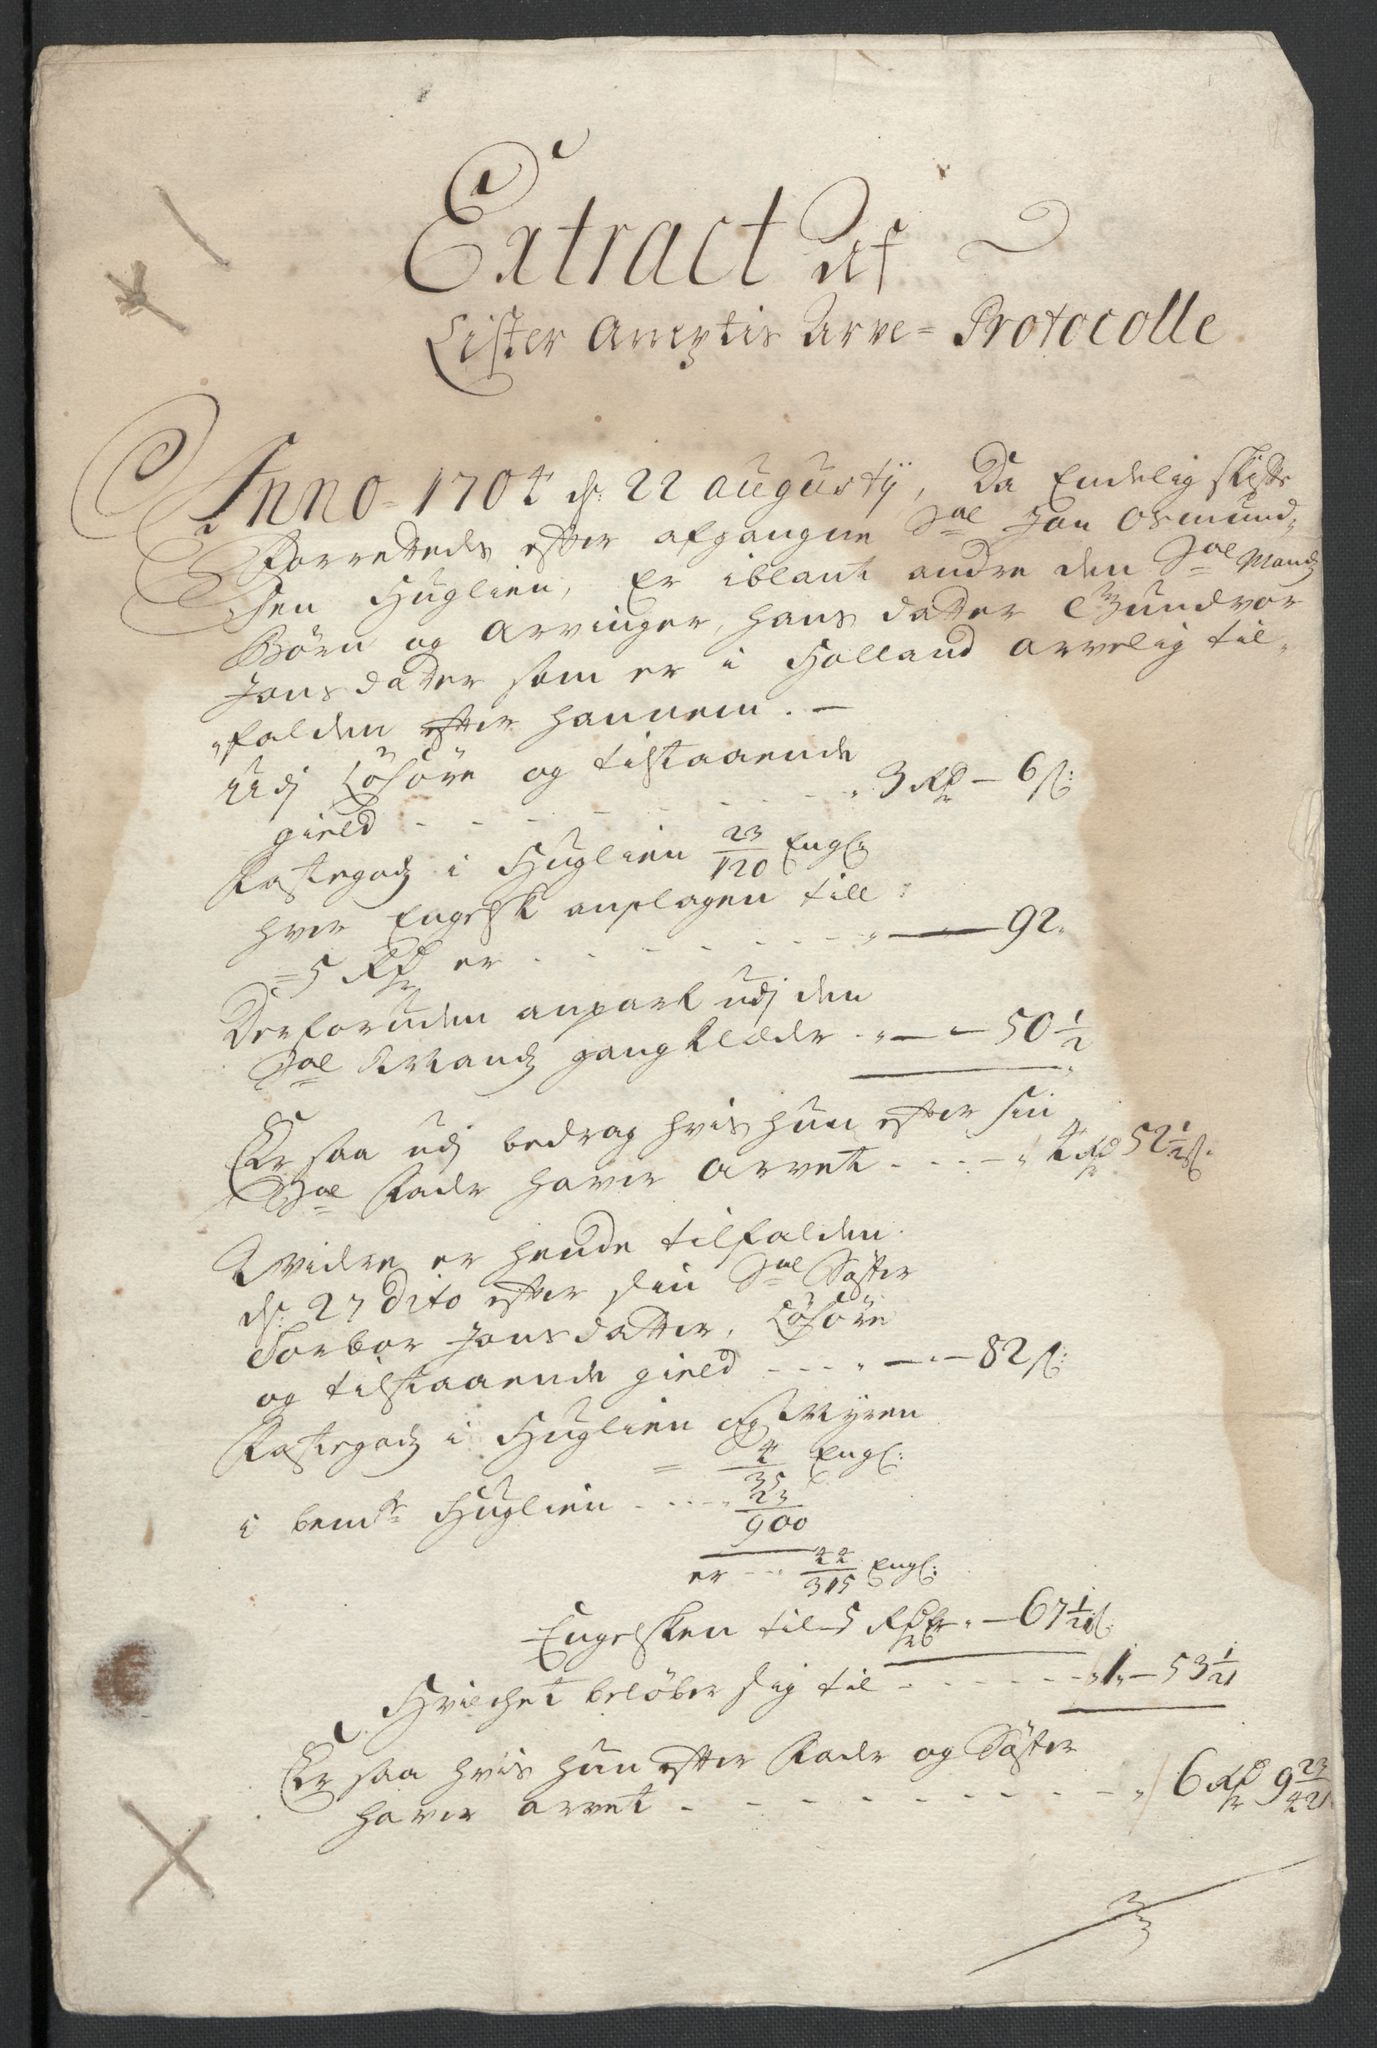 Extract Af
Lister Amptis Arve= Protocolle
Anno 1704 d: 22 augusty, Da Endelig skifte
forretteds efter afgangne Sal Jon Osmund-
sen Huglien, Er iblant andre den Sal Mands
Börn og Arvinger, hans datter Gundvor
Jonsdatter som er i Holland arvelig til-
falden efter hannem. —
Udj Lösöre og tilstaaende
gield - - - - - 3 Rdr — 6 s:
Jordegodz i Huglien 23/120 Engl:
hver Engelsk anslagen till
=5 Rdr er - - - - - — 92.
Derforuden anpart udj den
Sal Mands gangklæder - — 50 1/2
Er saa udj bedrag hvis hun efter sin
Sal Fader haver Arvet - - - 4 Rdr 52 1/2 s:
Widre er hende tilfalden
d: 27 Dito efter sin Sal Söster
Torbor Jonsdatter, Lösöre
og tilstaaende gield - - - — 82 s:
Jordegodz i Huglien og Myren
= 4/35 Engl:
i bemte Huglien - - - 23/900
er - - 44/315 Engl:
Engelsken til 5 Rdr er - 67 1/21 s:
Hvilchet belöber sig til - - - - - 1 — 53 1/21
Er saa hvis hun efter Fader og Söster
haver arvet - - - - - - - - 6 Rdr 9 23/42